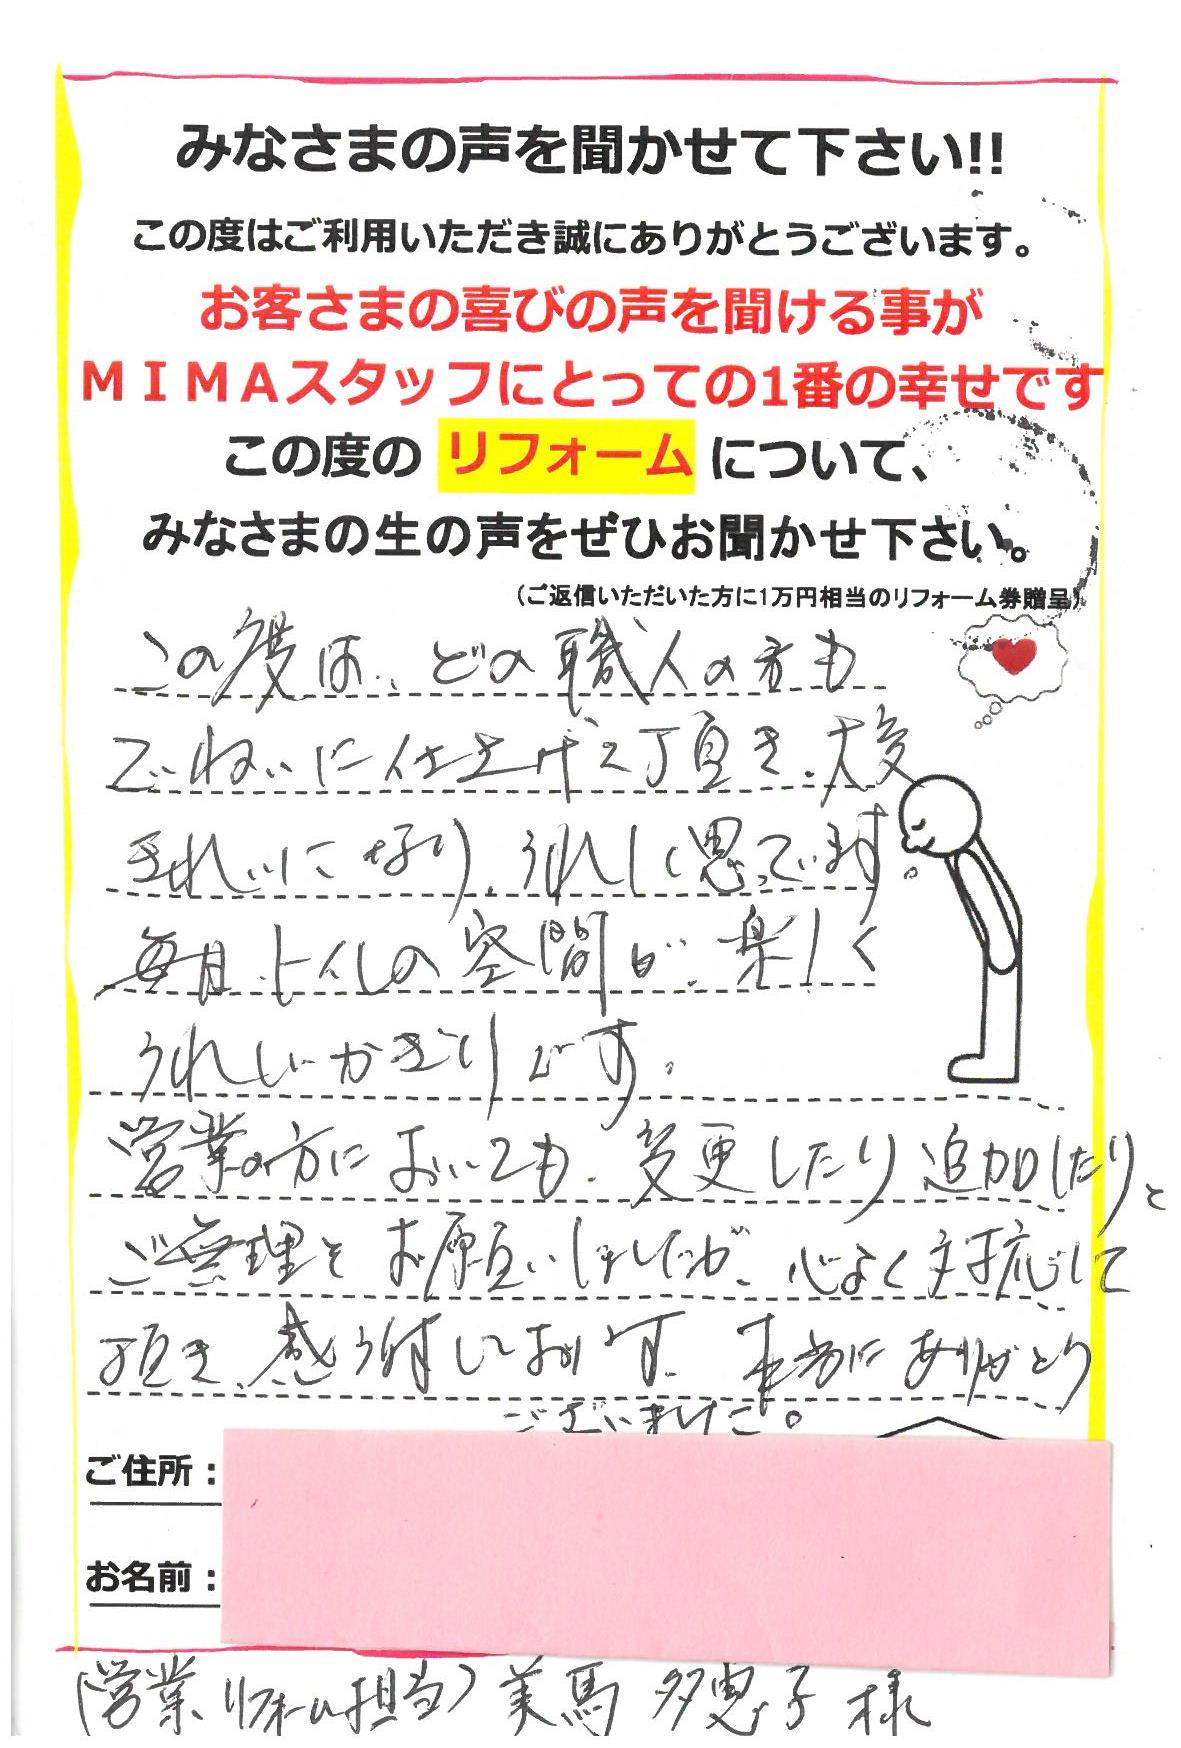 みなさまの声を聞かせて下さい!!
この度はご利用いただき誠にありがとうございます。
お客さまの喜びの声を聞ける事が
MIMAスタッフにとっての1番の幸せです
この度の リフォーム について、
みなさまの生の声をぜひお聞かせ下さい。
(ご返信いただいた方に1万円相当のリフォーム券贈呈)
この度は、どの職人の方も
ていねいに仕上げて頂き、大変
きれいになり、うれしく思っています
毎日、トイレの空間が、楽しく
うれしいかぎりです。
営業の方においても、変更したり追加したりと
ご無理をお願いしましたが、心よく対応して
頂き、感謝しております。本当にありがとう
ございました。
ご住所:
お名前:
(営業、リフォーム担当) 美馬 多恵子 様